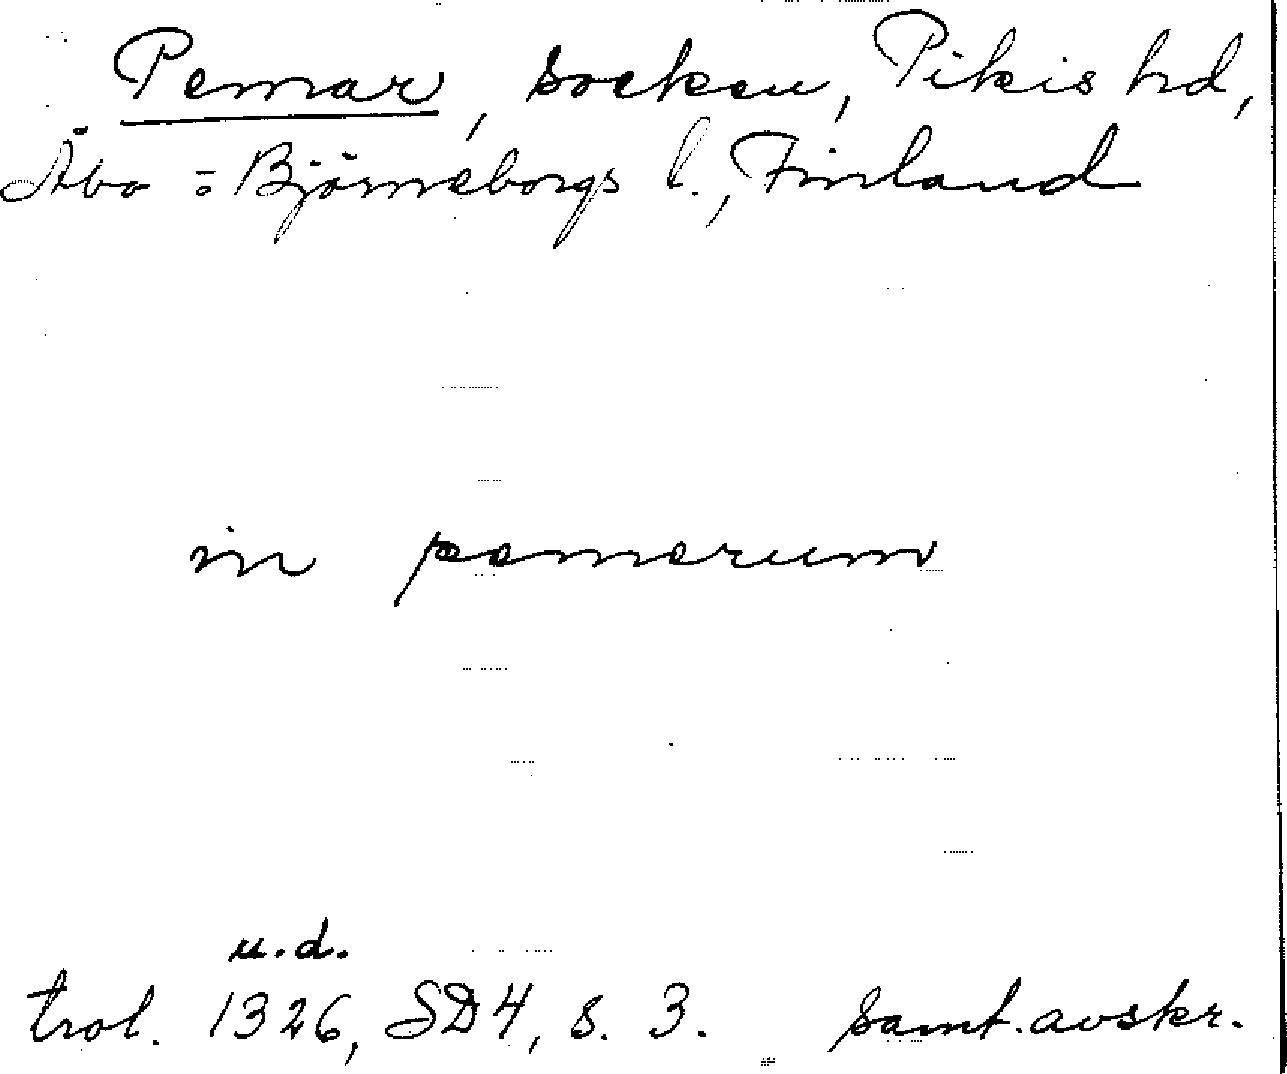 Pemar, socken, Pikis hd,
Åbo = Björneborgs l., Finland
in pemerum
u.d.
trol. 1326, SD4, s. 3. samt. avskr.